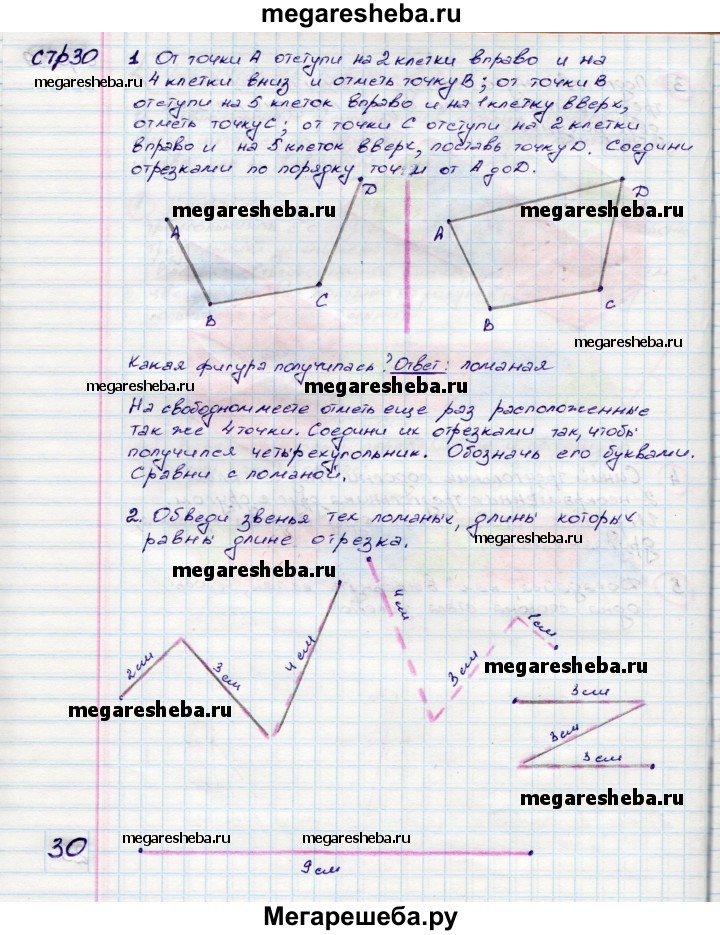 megaresheba.ru
стр30
1 От точки А отступи на 2 клетки вправо и на
megaresheba.ru
4 клетки вниз и отметь точку В; от точки В
отступи на 5 клеток вправо и на 1 клетку вверх,
отметь точку С; от точки С отступи на 2 клетки
вправо и на 5 клеток вверх, поставь точку D. Соедини
отрезками по порядку точки от А до D.
D
D
megaresheba.ru
megaresheba.ru
A
A
C
C
B
B
megaresheba.ru
Какая фигура получилась? Ответ: ломаная
megaresheba.ru
megaresheba.ru
megaresheba.ru
На свободном месте отметь еще раз расположенные
так же 4 точки. Соедини их отрезками так, чтобы
получился четырехугольник. Обозначь его буквами.
Сравни с ломаной.
2. Обведи звенья тех ломаных, длины которых
равны длине отрезка.
megaresheba.ru
megaresheba.ru
4 см
1 см
2 см
3 см
4 см
3 см
megaresheba.ru
megaresheba.ru
3 см
3 см
3 см
megaresheba.ru
30
megaresheba.ru
megaresheba.ru
9 см
Мегарешеба.ру